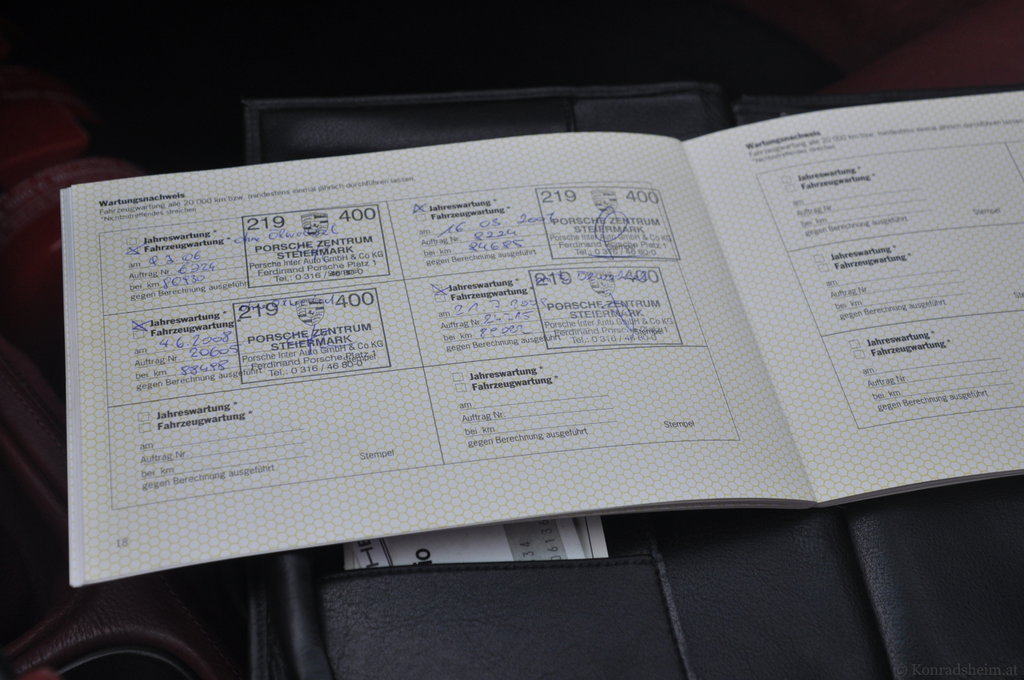 Wartungsnachweis
Fahrzeugwartung alle 20 000 km bzw. mindestens einmal jährlich durchführen lassen.
*Nichtzutreffendes streichen
Jahreswartung *
Fahrzeugwartung *
am
Auftrag Nr.
bei km 80930
gegen Berechnung ausgeführt
219 400
PORSCHE ZENTRUM
STEIERMARK
Porsche Inter Auto GmbH & Co KG
Ferdinand Porsche Platz 1
Tel.: 0 316 / 46 80-0
Jahreswartung *
Fahrzeugwartung *
am 16 03 2007
Auftrag Nr. 8224
bei km 84685
gegen Berechnung ausgeführt
219 400
PORSCHE ZENTRUM
STEIERMARK
Porsche Inter Auto GmbH & Co KG
Ferdinand Porsche Platz 1
Tel.: 0 316 / 46 80-0
Jahreswartung *
Fahrzeugwartung
am 4.6.2008
Auftrag Nr. 20605
bei km 88498
gegen Berechnung ausgeführt
219 400
PORSCHE ZENTRUM
STEIERMARK
Porsche Inter Auto GmbH & Co KG
Ferdinand Porsche Platz 1
Tel.: 0 316 / 46 80-0
Stempel
Jahreswartung *
Fahrzeugwartung *
am
Auftrag Nr.
bei km
gegen Berechnung ausgeführt
219 400
PORSCHE ZENTRUM
STEIERMARK
Porsche Inter Auto GmbH & Co KG
Ferdinand Porsche Platz 1
Tel.: 0 316 / 46 80-0
Stempel
Jahreswartung *
Fahrzeugwartung *
am
Auftrag Nr.
bei km
gegen Berechnung ausgeführt
Stempel
Jahreswartung *
Fahrzeugwartung *
am
Auftrag Nr.
bei km
gegen Berechnung ausgeführt
Stempel
18
Wartungsnachweis
Fahrzeugwartung alle 20 000 km bzw. mindestens einmal jährlich durchführen lassen
*Nichtzutreffendes streichen
Jahreswartung *
Fahrzeugwartung *
am
Auftrag Nr.
bei km
gegen Berechnung ausgeführt
Stempel
Jahreswartung *
Fahrzeugwartung *
am
Auftrag Nr.
bei km
gegen Berechnung ausgeführt
Jahreswartung *
Fahrzeugwartung *
am
Auftrag Nr.
bei km
gegen Berechnung ausgeführt
© Konradsheim.at